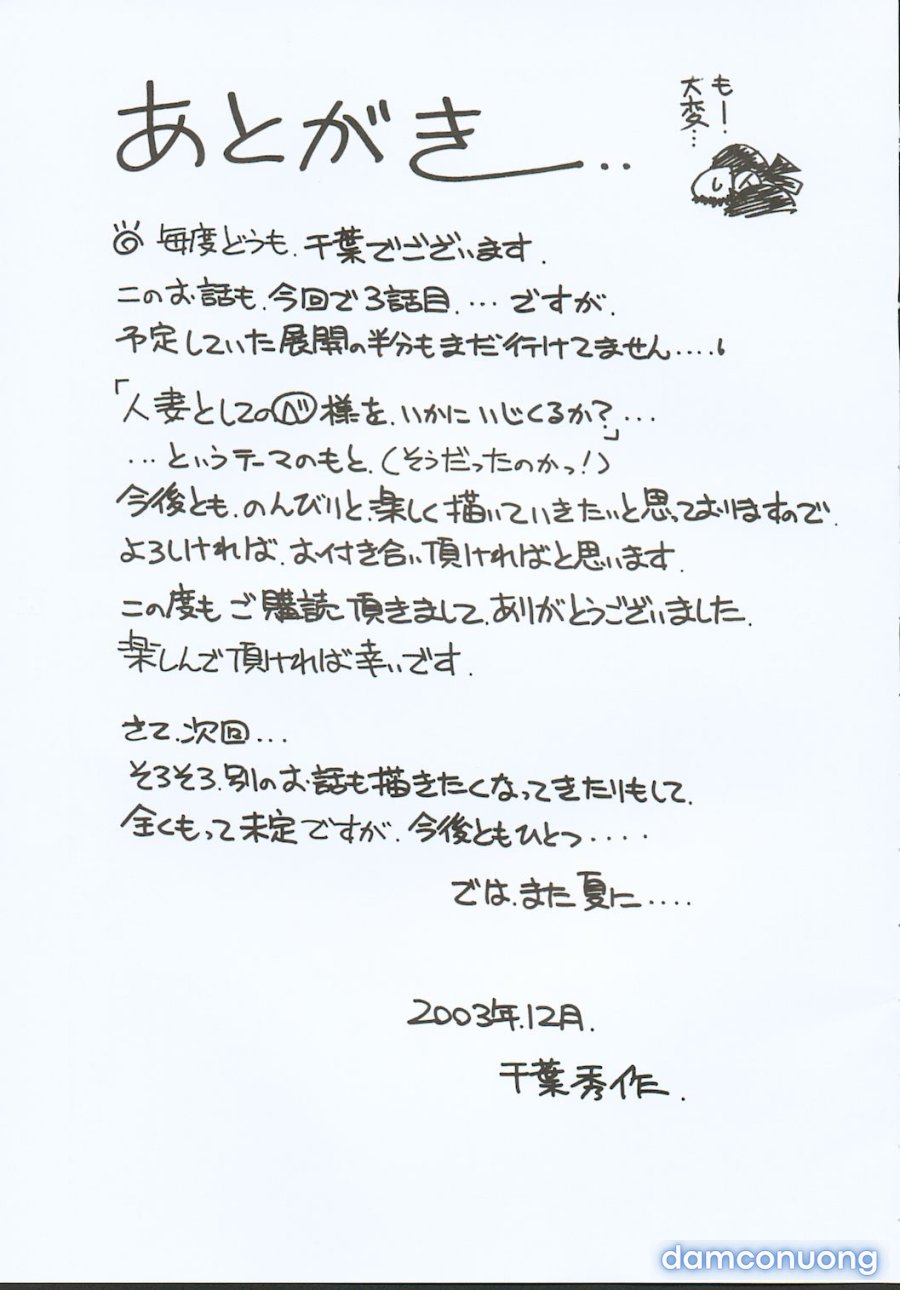 あとがき...
もー!
大変...
毎度どうも、千葉でございます.
このお話も、今回で3話目....ですが、
予定していた展開の半分もまだ行けてません....。
「人妻としてのベ様を、いかにいじくるか?...」
...というテーマのもと、(そうだったのかっ!)
今後とも、のんびりと、楽しく描いていきたいと思っておりますので、
よろしければ、お付き合い頂ければと思います.
この度もご購読頂きまして、ありがとうございました.
楽しんで頂ければ幸いです.
さて、次回...
そろそろ、別のお話も描きたくなってきたりもして、
全くもって未定ですが、今後ともひとつ....
では、また夏に....
2003年.12月.
千葉秀作.
damconuong